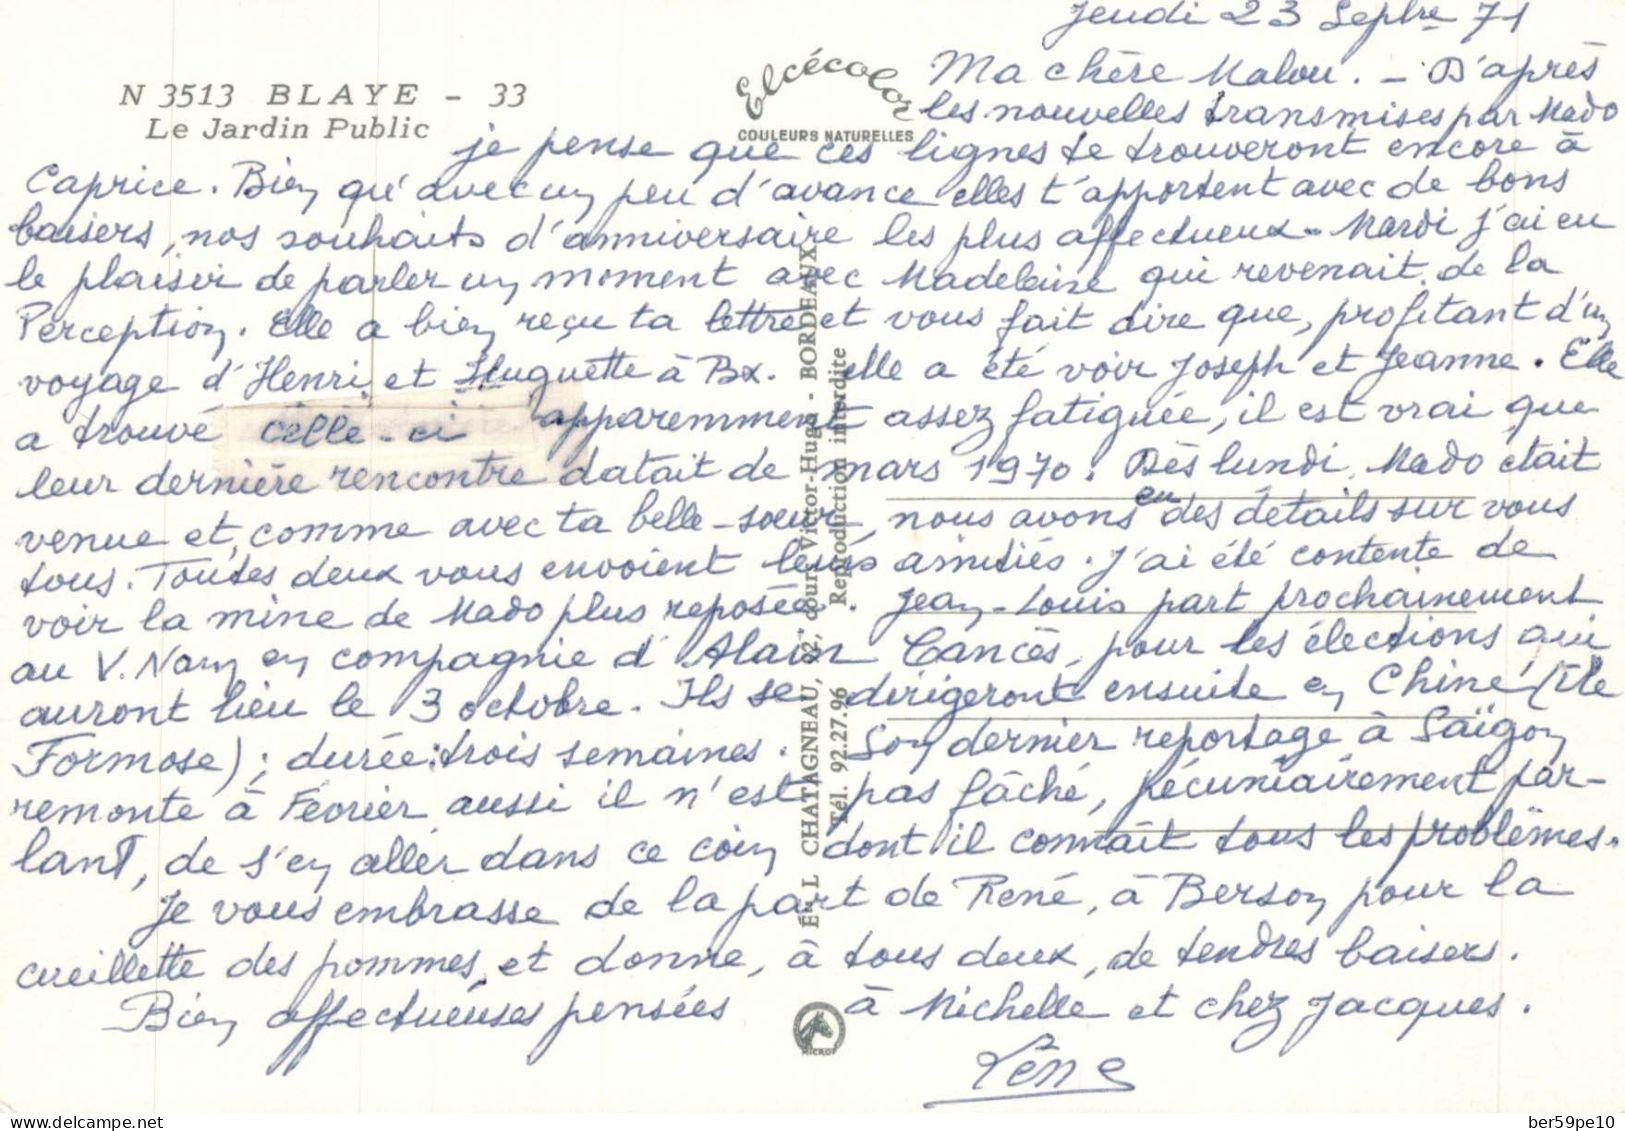 Jeudi 23 Septbre 71
N 3513 BLAYE - 33
Le Jardin Public
Elcécolor
COULEURS NATURELLES
Ma chère Malou. - D'après
les nouvelles transmises par Mado
je pense que ces lignes te trouveront encore à
Caprice. Bien qu'avec un peu d'avance elles t'apportent avec de bons
baisers, nos souhaits d'anniversaire les plus affectueux - Mardi j'ai eu
le plaisir de parler un moment avec Madeleine qui revenait de la
Perception. Elle a bien reçu ta lettre et vous fait dire que, profitant d'un
voyage d'Henri et Huguette à Bx. elle a été voir Joseph et Jeanne. Elle
a trouvé celle-ci apparemment assez fatiguée, il est vrai que
leur dernière rencontre datait de mars 1970. Dès lundi, Mado était
venue et, comme avec ta belle-soeur, nous avons eu des détails sur vous
tous. Toutes deux vous envoient leurs amitiés. J'ai été contente de
voir la mine de Mado plus reposée. Jean-Louis part prochainement
au V. Nam en compagnie d'Alain Cancès, pour les élections qui
auront lieu le 3 octobre. Ils se dirigeront ensuite en Chine (Ile
Formose) ; durée : trois semaines. Son dernier reportage à Saïgon
remonte à Février aussi il n'est pas fâché, pécuniairement par-
lant, de s'en aller dans ce coin dont il connaît tous les problèmes.
Je vous embrasse de la part de René, à Berson pour la
cueillette des pommes, et donne, à tous deux, de tendres baisers.
Bien affectueuses pensées à Michelle et chez Jacques.
Rène
Éts L CHATAGNEAU, 92, cours Victor-Hugo - BORDEAUX
Tél. 92.27.96 Reproduction interdite
MICROF
delcampe.net
ber59pe10